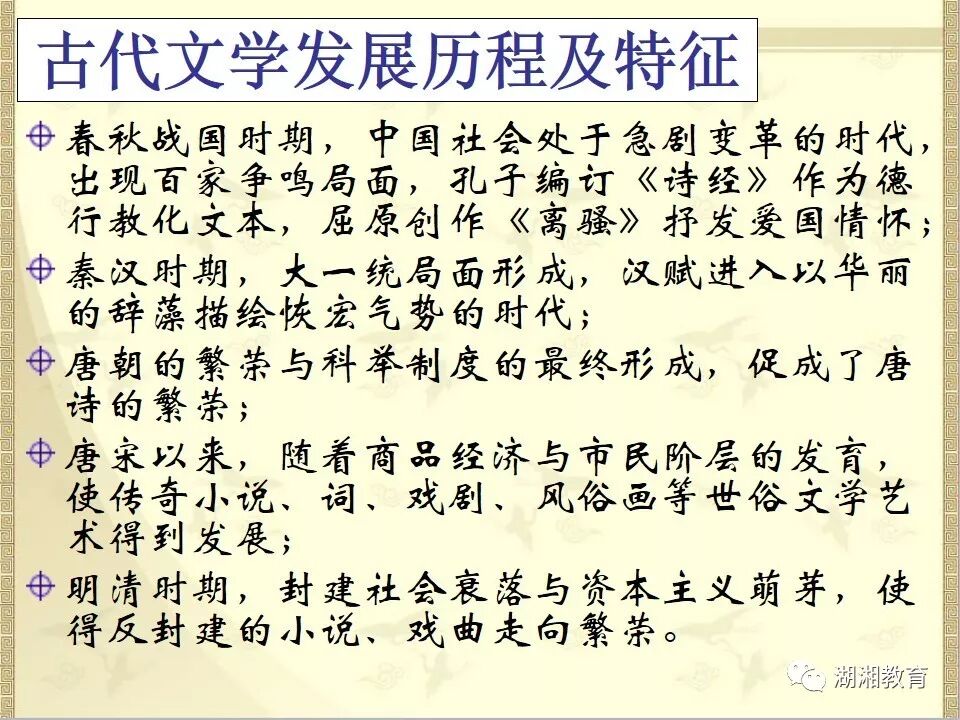 古代文学发展历程及特征
春秋战国时期，中国社会处于急剧变革的时代，
出现百家争鸣局面，孔子编订《诗经》作为德
行教化文本，屈原创作《离骚》抒发爱国情怀；
秦汉时期，大一统局面形成，汉赋进入以华丽
的辞藻描绘恢宏气势的时代；
唐朝的繁荣与科举制度的最终形成，促成了唐
诗的繁荣；
唐宋以来，随着商品经济与市民阶层的发育，
使传奇小说、词、戏剧、风俗画等世俗文学艺
术得到发展；
明清时期，封建社会衰落与资本主义萌芽，使
得反封建的小说、戏曲走向繁荣。
湖湘教育